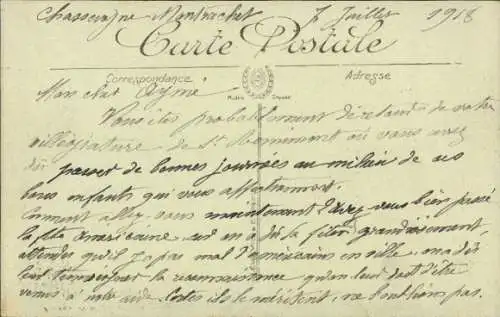 Chassagne-Montrachet 7 Juillet 1918
Carte Postale
Correspondance Adresse
Mon cher Aymé
Vous êtes probablement de retour de votre
villégiature de St où vous avez
dû passer de bonnes journées au milieu de ces
bons enfants qui vous
Comment allez-vous maintenant? Avez vous bien passé
la fête Américaine on a dû la fêter grandiosement,
attendu qu'il y a pas mal d'américains en ville, on a dû
leur la reconnaissance qu'on leur doit d'être
venus à notre aide ils le méritent, ne l'oublions pas.